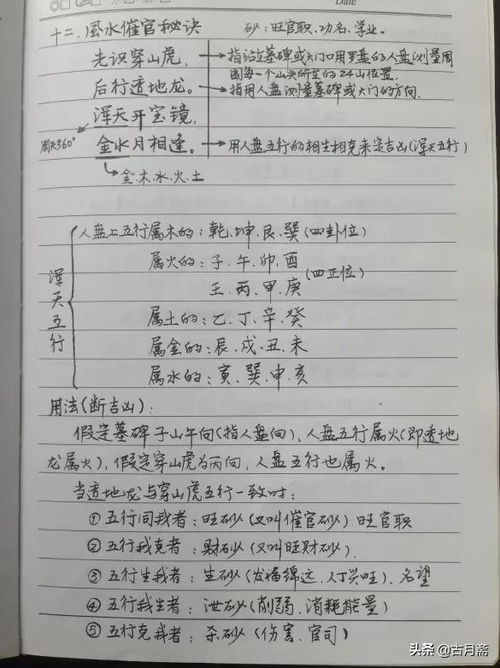 Date
十二、风水催官秘诀 砂:旺官职、功名、学业。
先识穿山虎, → 指站在墓碑或大门口用罗盘的人盘测量周围每一个山头所坐的24山位置.
后行透地龙。 → 指用人盘测量墓碑或大门的方向.
浑天开宝镜,
周天360°
金水月相逢。 → 用人盘五行的相生相克来定吉凶(浑天五行)
金.木.水.火.土
浑天五行
人盘上五行属木的:乾.坤.艮.巽(四卦位)
属火的:子.午.卯.酉
(四正位)
壬.丙.甲.庚
属土的:乙.丁.辛.癸
属金的:辰.戌.丑.未
属水的:寅.巽.申.亥
用法(断吉凶):
假定墓碑子山午向(指人盘向),人盘五行属火(即透地
龙属火),假定穿山虎为丙向,人盘五行也属火。
当透地龙与穿山虎五行一致时:
① 五行同我者:旺砂(又叫催官砂).旺官职
② 五行我克者:财砂(又叫旺财砂).
③ 五行生我者:生砂(发福绵远、人丁兴旺).名望
④ 五行我生者:泄砂(削弱、消耗能量)
⑤ 五行克我者:杀砂(伤害、官司)
头条 @古月斋